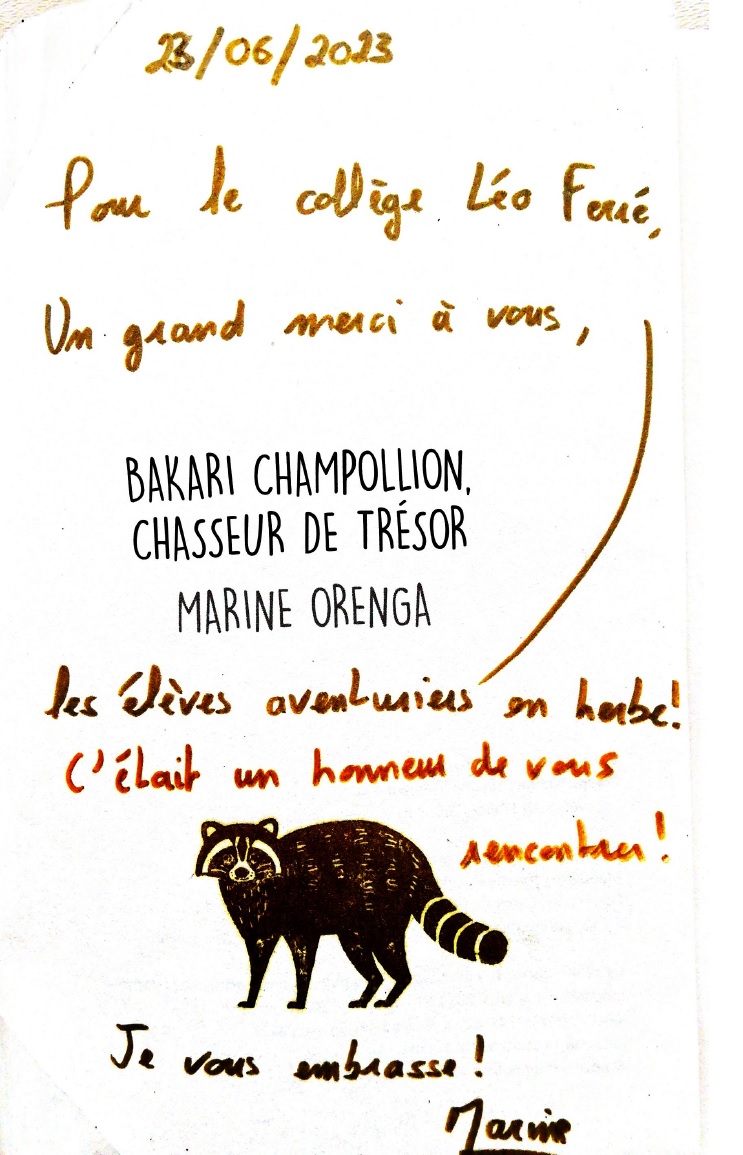 23/06/2023
Pour le collège Léo Ferré,
Un grand merci à vous,
BAKARI CHAMPOLLION,
CHASSEUR DE TRÉSOR
MARINE ORENGA
les élèves aventuriers en herbe!
C'était un honneur de vous
rencontrer!
Je vous embrasse!
Marine